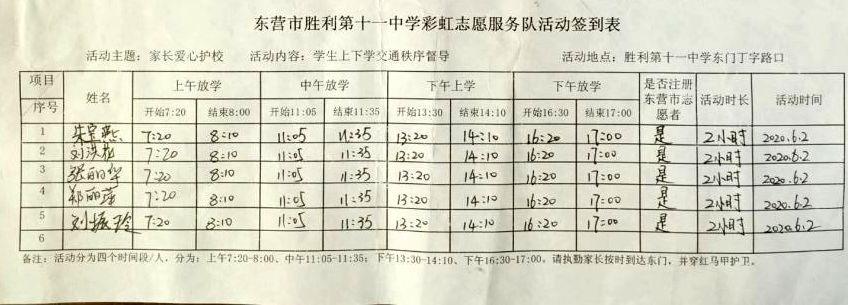 东营市胜利第十一中学彩虹志愿服务队活动签到表
活动主题：家长爱心护校 活动内容：学生上下学交通秩序督导 活动地点：胜利第十一中学东门丁字路口
项目 序号 姓名 上午放学 中午放学 下午上学 下午放学 是否注册东营市志愿者 活动时长 活动时间
开始7:20 结束8:00 开始11:05 结束11:35 开始13:30 结束14:10 开始16:30 结束17:00
1 朱宝燕 7:20 8:10 11:05 11:35 13:20 14:10 16:20 17:00 是 2小时 2020.6.2
2 刘洪松 7:20 8:10 11:05 11:35 13:20 14:10 16:20 17:00 是 2小时 2020.6.2
3 张丽华 7:20 8:10 11:05 11:35 13:20 14:10 16:20 17:00 是 2小时 2020.6.2
4 郑丽萍 7:20 8:10 11:05 11:35 13:20 14:10 16:20 17:00 是 2小时 2020.6.2
5 刘振玲 7:20 8:10 11:05 11:35 13:20 14:10 16:20 17:00 是 2小时 2020.6.2
6
备注：活动分为四个时间段/人，分为：上午7:20-8:00、中午11:05-11:35；下午13:30-14:10、下午16:30-17:00。请执勤家长按时到达东门，并穿红马甲护卫。